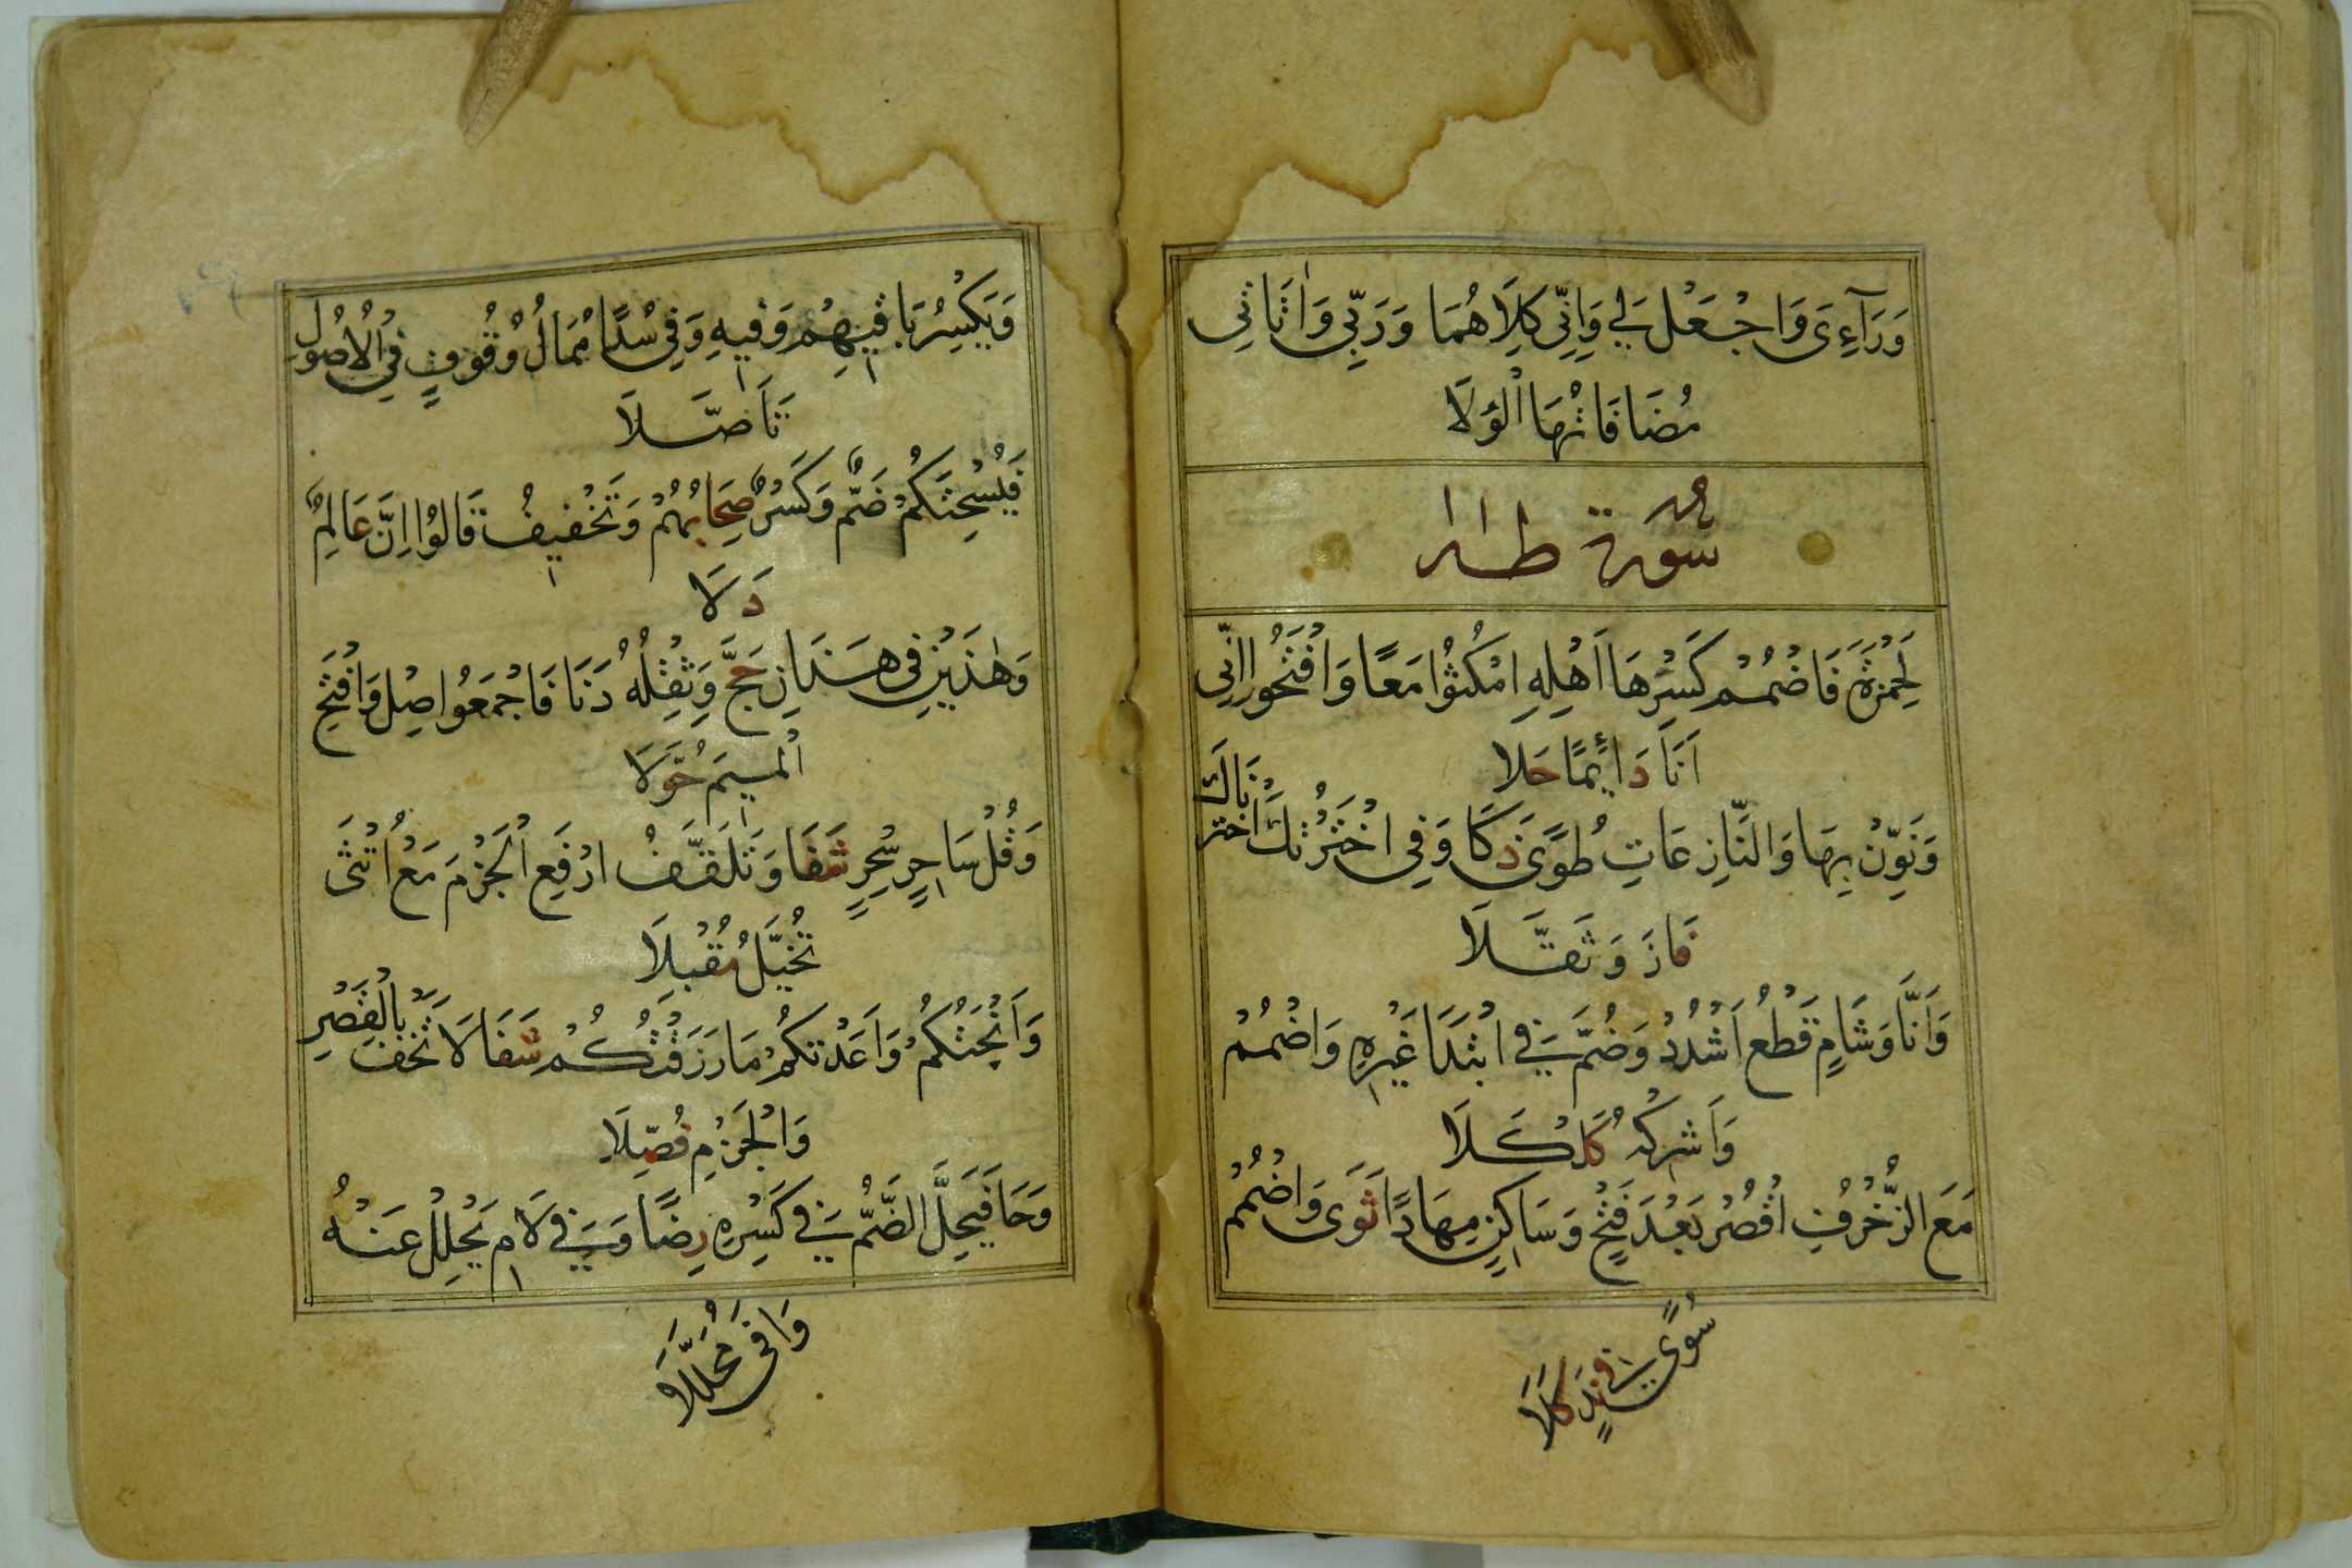 وَرَآءِىَ وَاجْعَلْ لِي وَإِنِّي كِلَاهُمَا وَرَبِّي وَاٰتَانِي
مُضَافَاتُهَا الْوَلَا
سُورَة طٰهٰ
لِحَمْزَةَ فَاضْمُمْ كَسْرَهَا اَهْلِهِ امْكُثُوْا مَعًا وَافْتَحُوْا اِنِّي
اَنَا دَائِمًا حَلَا
وَنَوِّنْ بِهَا وَالنَّازِعَاتِ طُوًى ذَكَا وَفِي اخْتَرْتُكَ اخْتَرْنَاكَ
فَازَ وَثَقَّلَا
وَاَنَّا وَشَامٍ قَطْعُ اَشْدُدْ وَضُمَّ فِي ابْتِدَا غَيْرِهِ وَاضْمُمْ
وَاَشْرِكْهُ كَلْكَلَا
مَعَ الزُّخْرُفِ اقْصُرْ بَعْدَ فَتْحٍ وَسَاكِنٍ مِهَادًا ثَوَى وَاضْمُمْ
سُوًى فِي نَدٍ كَلَا
وَيَكْسِرُ بَاقِيهِمْ وَفِيهِ وَفِي سُدًا مُمَالُ وُقُوفٍ فِي الْاُصُولِ
تَاَصَّلَا
فَيُسْحِتَكُمْ ضَمٌّ وَكَسْرٌ صِحَابُهُمْ وَتَخْفِيفُ قَالُوْا اِنَّ عَالِمٌ
دَلَا
وَهٰذَيْنِ فِي هٰذَانِ حَجَّ وَثِقْلُهُ دَنَا فَاجْمَعُوا صِلْ وَافْتَحِ
الْمِيمَ حُوَّلَا
وَقُلْ سَاحِرٍ سِحْرٍ شَفَا وَتَلَقَّفُ ارْفَعِ الْجَزْمَ مَعْ اُنْثَى
تُخَيَّلُ مُقْبِلَا
وَاَنْجَيْتُكُمْ وَاعَدْتُكُمْ مَا رَزَقْتُكُمْ شَفَا لَا تَخَفْ بِالْقَصْرِ
وَالْجَزْمِ فُصِّلَا
وَحَا فَيَحِلَّ الضَّمُّ فِي كَسْرِهِ رِضًا وَفِي لَامِ يَحْلِلْ عَنْهُ
وَافَى مُحَلَّلَا